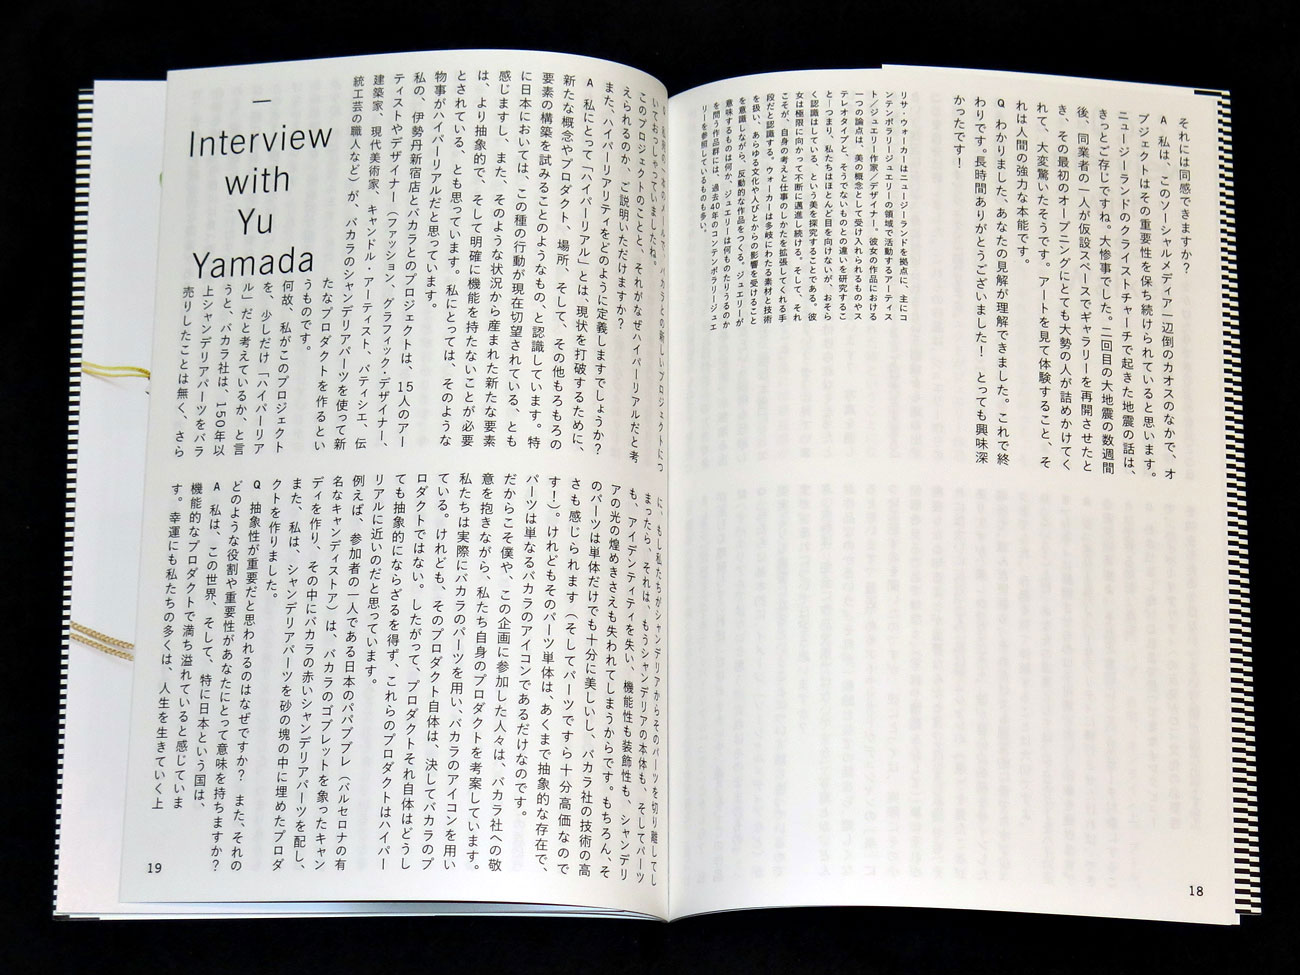 それには同感できますか？
A 私は、このソーシャルメディア一辺倒のカオスのなかで、オ
ブジェクトはその重要性を保ち続けられていると思います。
ニュージーランドのクライストチャーチで起きた地震の話は、
きっとご存じですね。大惨事でした。二回目の大地震の数週間
後、同業者の一人が仮設スペースでギャラリーを再開させたと
き、その最初のオープニングにとても大勢の人が詰めかけてく
れて、大変驚いたそうです。アートを見て体験すること、そ
れは人間の強力な本能です。
Q わかりました、あなたの見解が理解できました。これで終
わりです。長時間ありがとうございました！ とっても興味深
かったです！
リサ・ウォーカーはニュージーランドを拠点に、主にコ
ンテンポラリージュエリーの領域で活動するアーティス
ト／ジュエリー作家／デザイナー。彼女の作品における
一つの論点は、美の概念として受け入れられるものやス
テレオタイプと、そうでないものとの違いを研究するこ
と—つまり、私たちはほとんど目を向けないが、おそら
く認識はしている、という美を探究することである。彼
女は極限に向かって不断に邁進し続ける。そして、それ
こそが、自身の考えと仕事のしかたを拡張してくれる手
段だと認識する。ウォーカーは多岐にわたる素材と技術
を扱い、あらゆる文化や人びとからの影響を受けること
を意識しながら、反動的な作品をつくる。ジュエリーが
意味するものは何か、ジュエリーは何ものたりうるのか
を問う作品群には、過去40年のコンテンポラリージュエ
リーを参照しているものも多い。
18
Interview
with
Yu
Yamada
バカラとの新しいプロジェクトにつ
いておっしゃっていましたね。
このプロジェクトのことと、それがなぜハイパーリアルだと考
えられるのか、ご説明いただけますか？
また、ハイパーリアリティをどのように定義しますでしょうか？
A 私にとって「ハイパーリアル」とは、現状を打破するために、
新たな概念やプロダクト、場所、そして、その他もろもろの
要素の構築を試みることのようなもの、と認識しています。特
に日本においては、この種の行動が現在切望されている、とも
感じますし、また、そのような状況から産まれた新たな要素
は、より抽象的で、そして明確に機能を持たないことが必要
とされている、とも思っています。私にとっては、そのような
物事がハイパーリアルだと思っています。
私の、伊勢丹新宿店とバカラとのプロジェクトは、15人のアー
ティストやデザイナー（ファッション、グラフィック・デザイナー、
建築家、現代美術家、キャンドル・アーティスト、パティシエ、伝
統工芸の職人など）が、バカラのシャンデリアパーツを使って新
たなプロダクトを作るとい
うものです。
何故、私がこのプロジェクト
を、少しだけ「ハイパーリア
ル」だと考えているか、と言
うと、バカラ社は、150年以
上シャンデリアパーツをバラ
売りしたことは無く、さら
に、もし私たちがシャンデリアからそのパーツを切り離してし
まったら、それは、もうシャンデリアの本体も、そしてパーツ
も、アイデンティティを失い、機能性も装飾性も、シャンデリ
アの光の煌めきさえも失われてしまうからです。もちろん、そ
のパーツは単体だけでも十分に美しいし、バカラ社の技術の高
さも感じられます（そしてパーツですら十分高価なので
す！）。けれどもそのパーツ単体は、あくまで抽象的な存在で、
パーツは単なるバカラのアイコンであるだけなのです。
だからこそ僕や、この企画に参加した人々は、バカラ社への敬
意を抱きながら、私たち自身のプロダクトを考案しています。
私たちは実際にバカラのパーツを用い、バカラのアイコンを用い
ている。けれども、そのプロダクト自体は、決してバカラのプ
ロダクトではない。したがって、プロダクトそれ自体はどうし
ても抽象的にならざるを得ず、これらのプロダクトはハイパー
リアルに近いのだと思っています。
例えば、参加者の一人である日本のパパブブレ（バルセロナの有
名なキャンディストア）は、バカラのゴブレットを象ったキャン
ディを作り、その中にバカラの赤いシャンデリアパーツを配し、
また、私は、シャンデリアパーツを砂の塊の中に埋めたプロダ
クトを作りました。
Q 抽象性が重要だと思われるのはなぜですか？ また、それの
どのような役割や重要性があなたにとって意味を持ちますか？
A 私は、この世界、そして、特に日本という国は、
機能的なプロダクトで満ち溢れていると感じていま
す。幸運にも私たちの多くは、人生を生きていく上
19